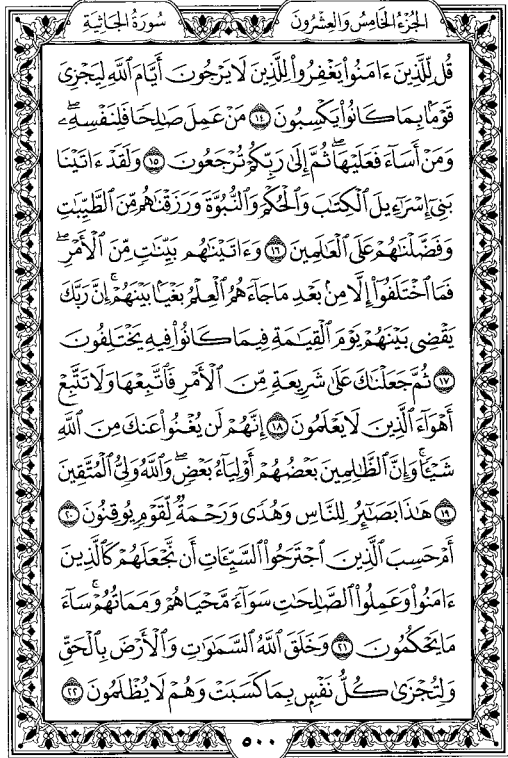 الجُزْءُ الخَامِسُ وَالعِشْرُونَ
سُورَةُ الجَاثِيَةِ
قُل لِّلَّذِينَ ءَامَنُوا۟ يَغْفِرُوا۟ لِلَّذِينَ لَا يَرْجُونَ أَيَّامَ ٱللَّهِ لِيَجْزِىَ
قَوْمًۢا بِمَا كَانُوا۟ يَكْسِبُونَ ١٤ مَنْ عَمِلَ صَـٰلِحًا فَلِنَفْسِهِۦ ۖ
وَمَنْ أَسَآءَ فَعَلَيْهَا ۖ ثُمَّ إِلَىٰ رَبِّكُمْ تُرْجَعُونَ ١٥ وَلَقَدْ ءَاتَيْنَا
بَنِىٓ إِسْرَٰٓءِيلَ ٱلْكِتَـٰبَ وَٱلْحُكْمَ وَٱلنُّبُوَّةَ وَرَزَقْنَـٰهُم مِّنَ ٱلطَّيِّبَـٰتِ
وَفَضَّلْنَـٰهُمْ عَلَى ٱلْعَـٰلَمِينَ ١٦ وَءَاتَيْنَـٰهُم بَيِّنَـٰتٍ مِّنَ ٱلْأَمْرِ ۖ
فَمَا ٱخْتَلَفُوٓا۟ إِلَّا مِنۢ بَعْدِ مَا جَآءَهُمُ ٱلْعِلْمُ بَغْيًۢا بَيْنَهُمْ ۚ إِنَّ رَبَّكَ
يَقْضِى بَيْنَهُمْ يَوْمَ ٱلْقِيَـٰمَةِ فِيمَا كَانُوا۟ فِيهِ يَخْتَلِفُونَ
١٧ ثُمَّ جَعَلْنَـٰكَ عَلَىٰ شَرِيعَةٍ مِّنَ ٱلْأَمْرِ فَٱتَّبِعْهَا وَلَا تَتَّبِعْ
أَهْوَآءَ ٱلَّذِينَ لَا يَعْلَمُونَ ١٨ إِنَّهُمْ لَن يُغْنُوا۟ عَنكَ مِنَ ٱللَّهِ
شَيْـًٔا ۚ وَإِنَّ ٱلظَّـٰلِمِينَ بَعْضُهُمْ أَوْلِيَآءُ بَعْضٍ ۖ وَٱللَّهُ وَلِىُّ ٱلْمُتَّقِينَ
١٩ هَـٰذَا بَصَـٰٓئِرُ لِلنَّاسِ وَهُدًى وَرَحْمَةٌ لِّقَوْمٍ يُوقِنُونَ ٢٠
أَمْ حَسِبَ ٱلَّذِينَ ٱجْتَرَحُوا۟ ٱلسَّيِّـَٔاتِ أَن نَّجْعَلَهُمْ كَٱلَّذِينَ
ءَامَنُوا۟ وَعَمِلُوا۟ ٱلصَّـٰلِحَـٰتِ سَوَآءً مَّحْيَاهُمْ وَمَمَاتُهُمْ ۚ سَآءَ
مَا يَحْكُمُونَ ٢١ وَخَلَقَ ٱللَّهُ ٱلسَّمَـٰوَٰتِ وَٱلْأَرْضَ بِٱلْحَقِّ
وَلِتُجْزَىٰ كُلُّ نَفْسٍۭ بِمَا كَسَبَتْ وَهُمْ لَا يُظْلَمُونَ ٢٢
٥٠٠